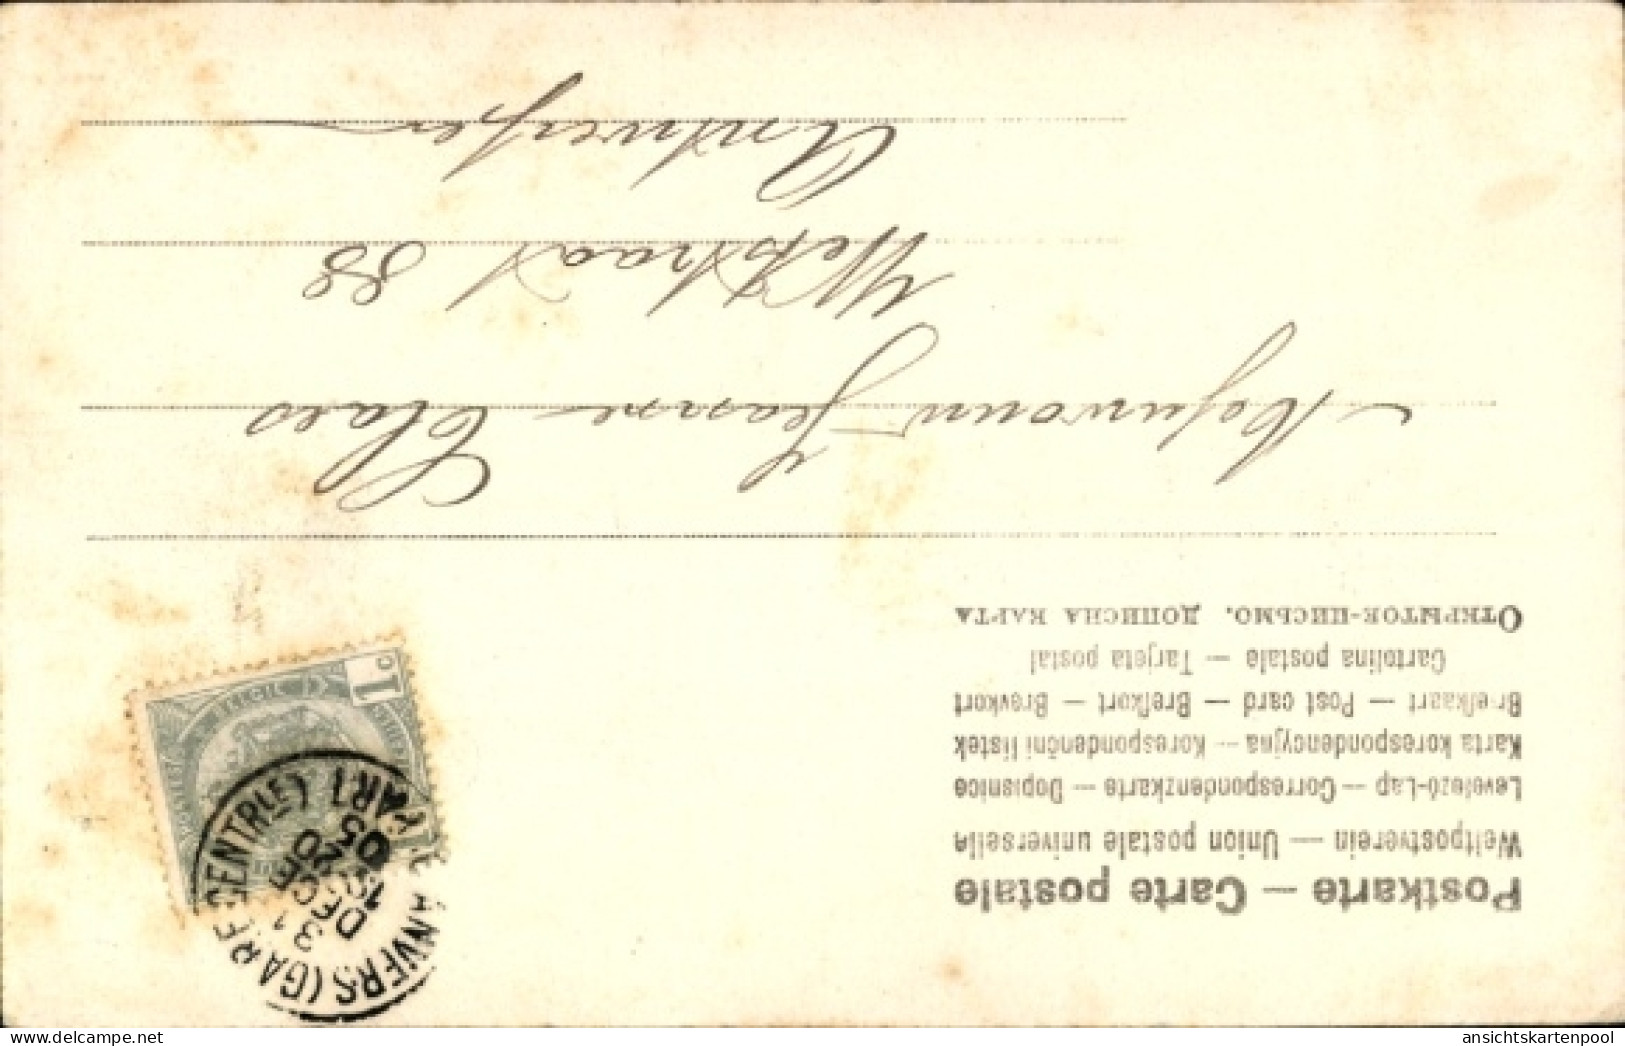 Postkarte — Carte postale
Weltpostverein — Union postale universelle
Levelező-Lap — Correspondenzkarte — Dopisnice
Karta korespondencyjna — Korespondenční lístek
Briefkaart — Post card — Brefkort — Brevkort
Cartolina postale — Tarjeta postal
Открытое-письмо. дописна карта
Mejuvrouw Jeanne Claes
Wetstraat 88
Antwerpen
1c
BELGIE
ANVERS (GARE CENTRLE)
31
DECE
20
05
ansichtskartenpool